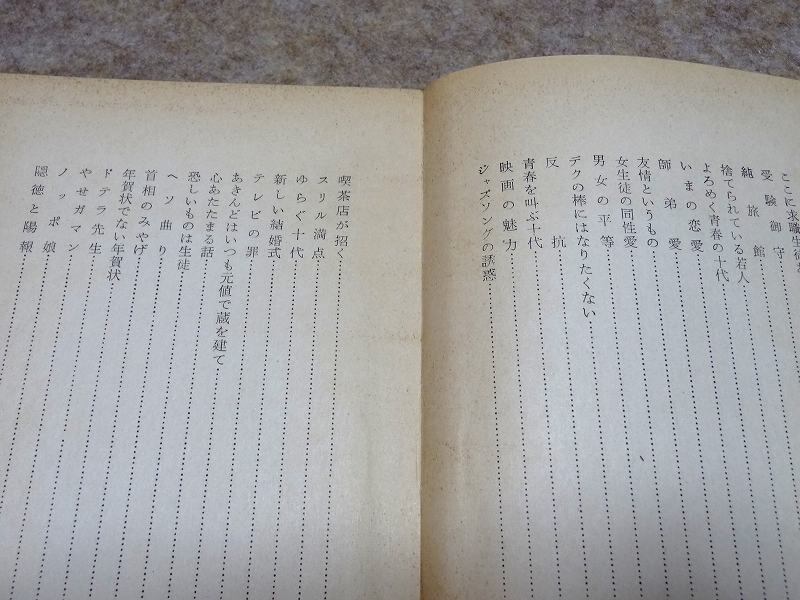 ここに求職生徒
受験御守
純旅館
捨てられている若人
よろめく青春の十代
いまの恋愛
師弟愛
友情というもの
女生徒の同性愛
男女の平等
デクの棒にはなりたくない
反抗
青春を叫ぶ十代
映画の魅力
ジャズソングの誘惑
喫茶店が招く
スリル満点
ゆらぐ十代
新しい結婚式
テレビの罪
あきんどはいつも元値で蔵を建て
心あたたまる話
恐しいものは生徒
ヘソ曲り
首相のみやげ
年賀状でない年賀状
ドテラ先生
やせガマン
ノッポ娘
隠徳と陽報